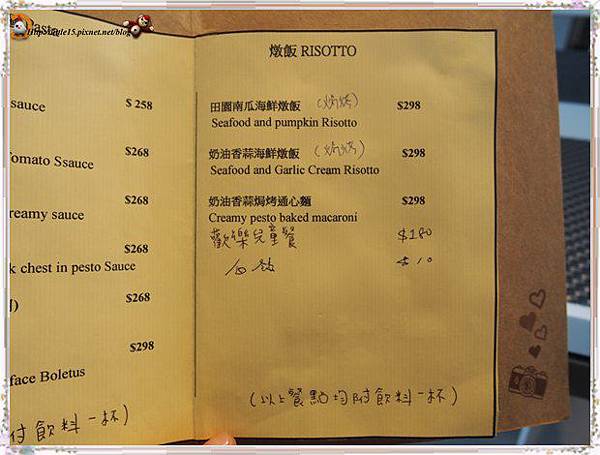 http://tle15.pixnet.net/blog
asta
sauce
$ 258
omato Ssauce
$268
reamy sauce
$268
k chest in pesto Sauce
$268
$268
$298
face Boletus
付飲料一杯)
燉飯 RISOTTO
田園南瓜海鮮燉飯 (焗烤) $298
Seafood and pumpkin Risotto
奶油香蒜海鮮燉飯 (焗烤) $298
Seafood and Garlic Cream Risotto
奶油香蒜焗烤通心麵 $298
Creamy pesto baked macaroni
歡樂兒童餐 $180
白飯 $10
(以上餐點均附飲料一杯)